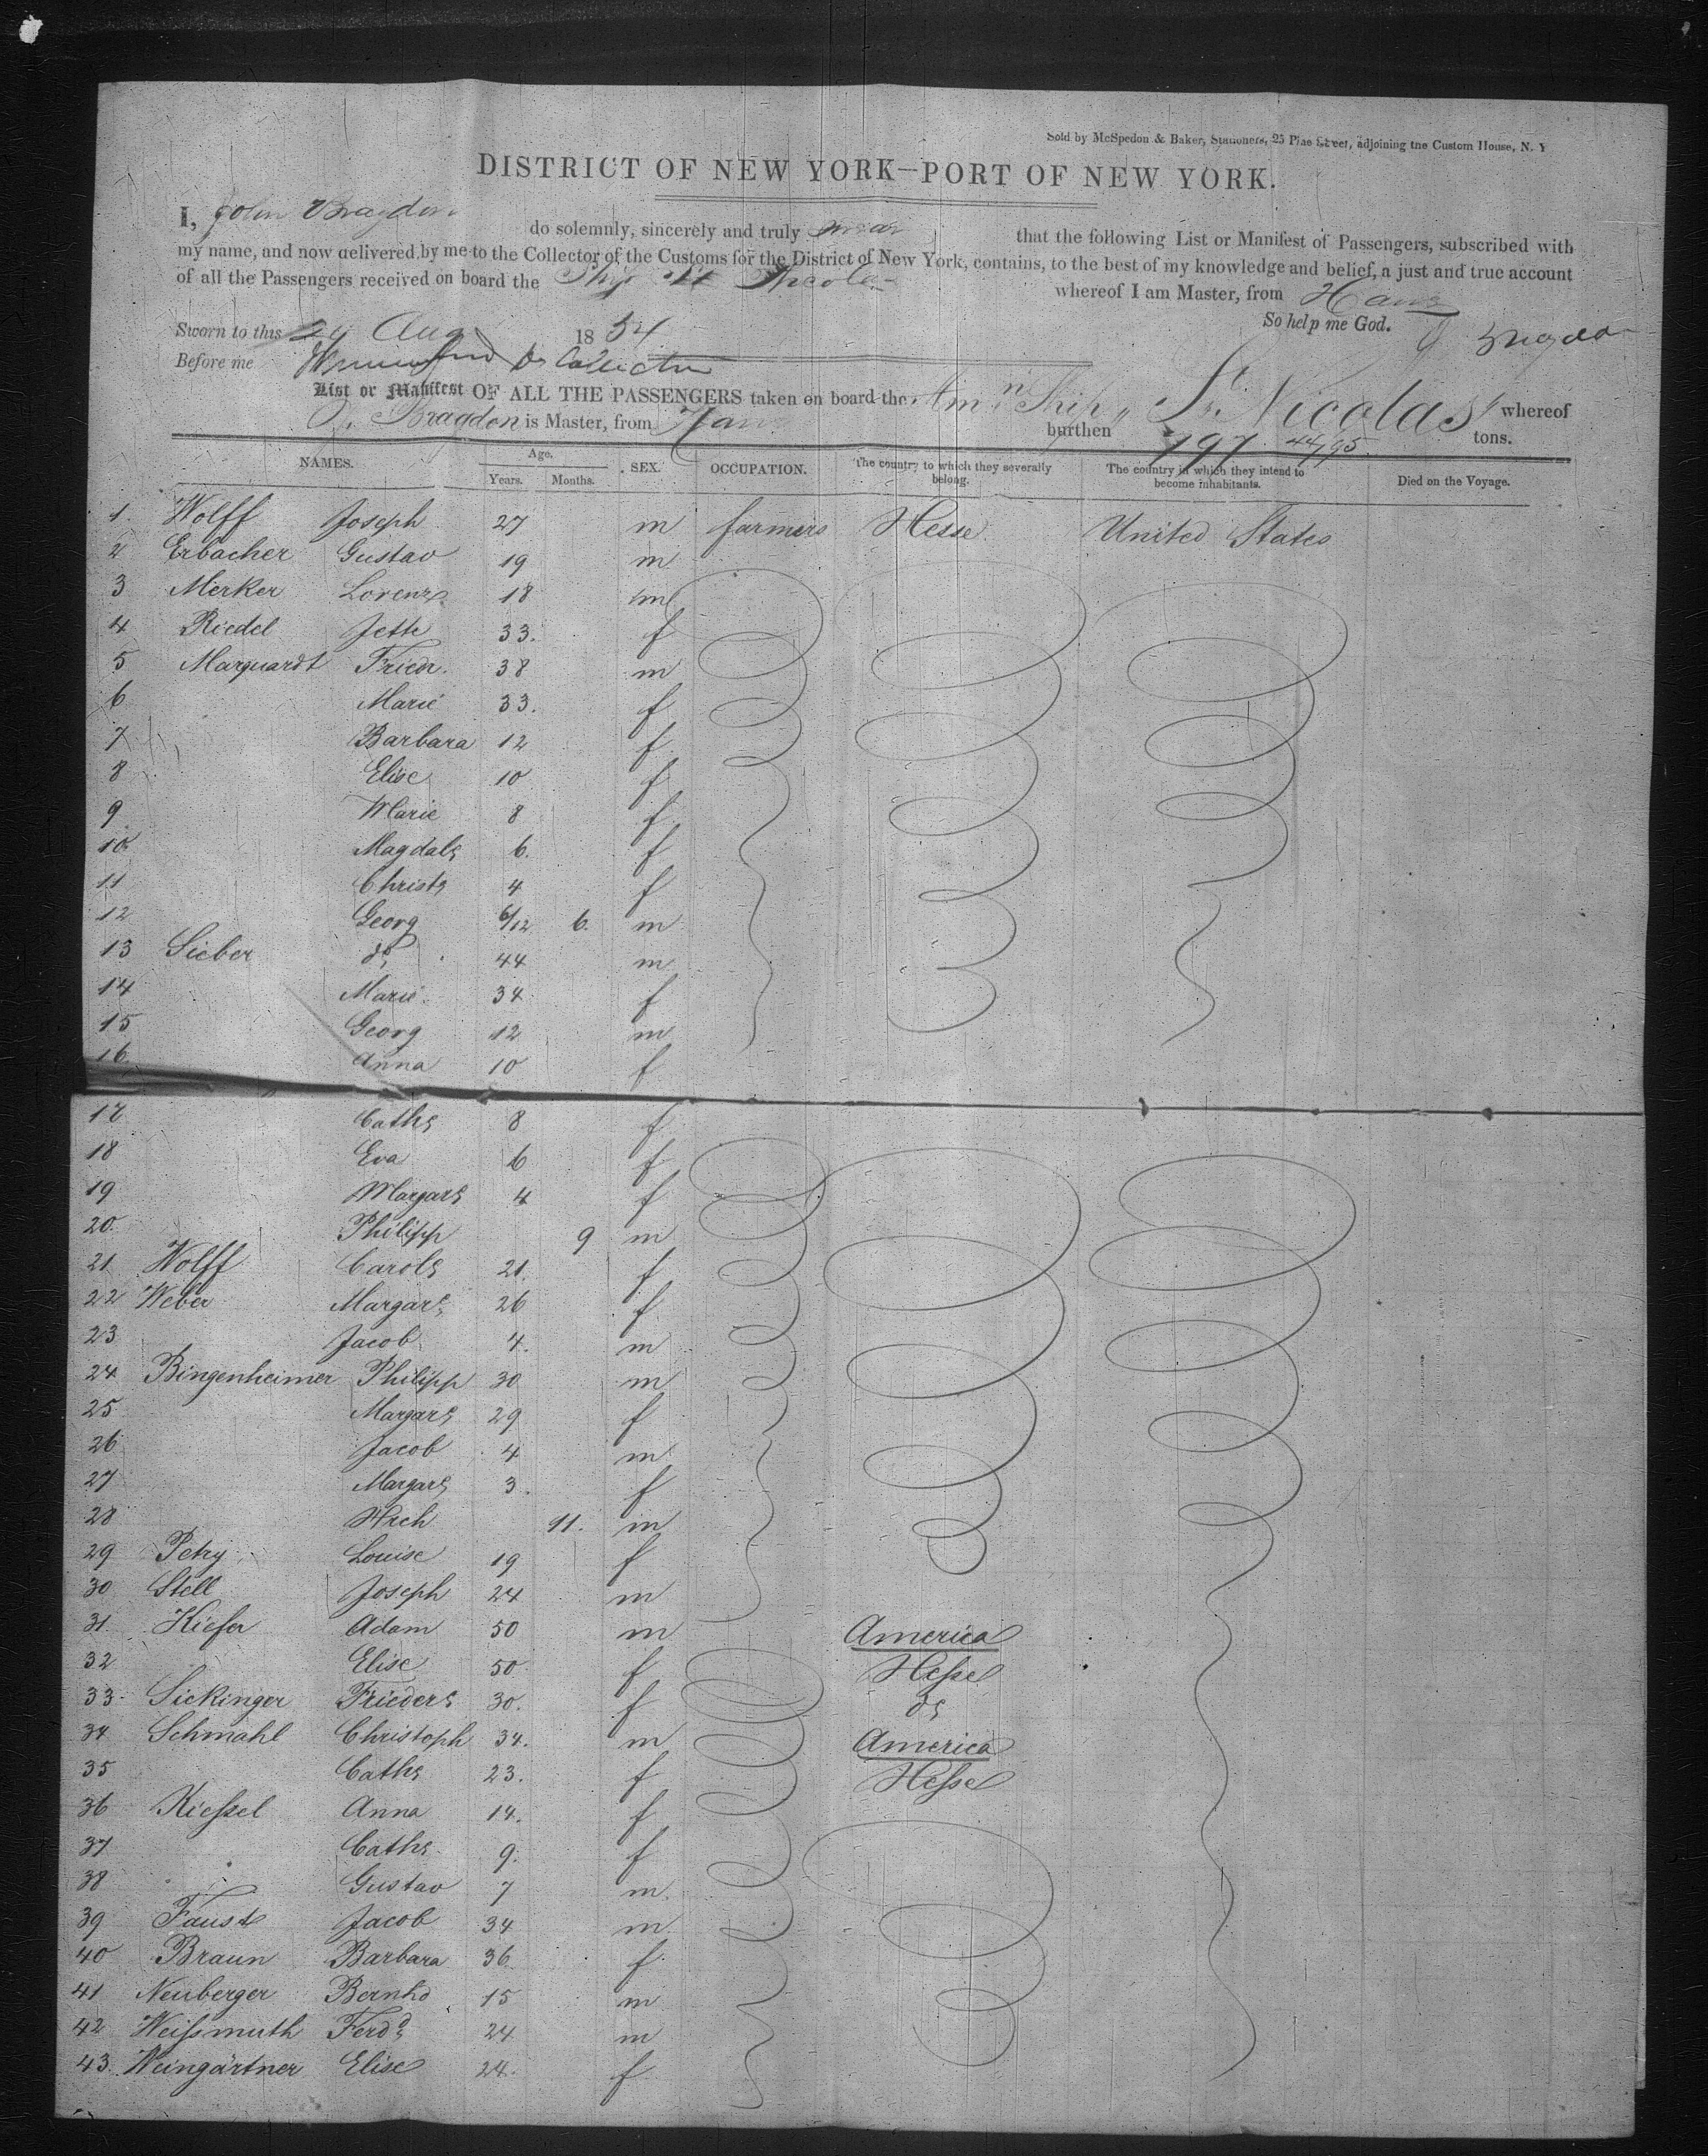 Sold by McSpedon & Baker, Stationers, 25 Pine Street, adjoining the Custom House, N. Y
DISTRICT OF NEW YORK—PORT OF NEW YORK.
I, John Bragdon do solemnly, sincerely and truly swear that the following List or Manifest of Passengers, subscribed with
my name, and now delivered by me to the Collector of the Customs for the District of New York, contains, to the best of my knowledge and belief, a just and true account
of all the Passengers received on board the Ship St Nicolas whereof I am Master, from Havre
So help me God.
Sworn to this 24 Aug 1854 J Bragdon
Before me
List or Manifest OF ALL THE PASSENGERS taken on board the Amn Ship "St. Nicolas" whereof
J. Bragdon is Master, from Havre burthen 797 44/95 tons.
NAMES. Age. Years. Months. SEX. OCCUPATION. The country to which they severally belong. The country in which they intend to become inhabitants. Died on the Voyage.
1. Wolff Joseph 27 m farmers Hesse United States
2 Erbacher Gustav 19 m
3 Merker Lorenz 18 m
4 Riedel Jette 33. f
5 Marquardt Friedr. 38 m
6 Marie 33. f
7 Barbara 12 f
8 Elise 10 f
9 Marie 8 f
10 Magdale 6. f
11 Christe 4 f
12 Georg 6/12 6. m
13 Sieber do 44 m
14 Marie 34 f
15 Georg 12 m
16 Anna 10 f
17 Cathe 8 f
18 Eva 6 f
19 Margare 4 f
20 Philipp 9 m
21 Wolff Carole 21. f
22 Weber Margare 26 f
23 Jacob 4. m
24 Bingenheimer Philipp 30 m
25 Margare 29 f
26 Jacob 4 m
27 Margare 3. f
28 Hrch 11. m
29 Petry Louise 19 f
30 Stell Joseph 24 m
31. Kiefer Adam 50 m America
32 Elise 50 f Hesse
33 Sickinger Friedere 30. f do
34 Schmahl Christoph 34. m America
35 Cathe 23. f Hesse
36 Kiessel Anna 14. f
37 Cathe 9. f
38 Gustav 7 m.
39 Faust Jacob 34 m
40 Braun Barbara 36. f
41 Neuberger Bernhd 15 m
42 Weissmuth Ferdd 24 m
43. Weingärtner Elise 24. f